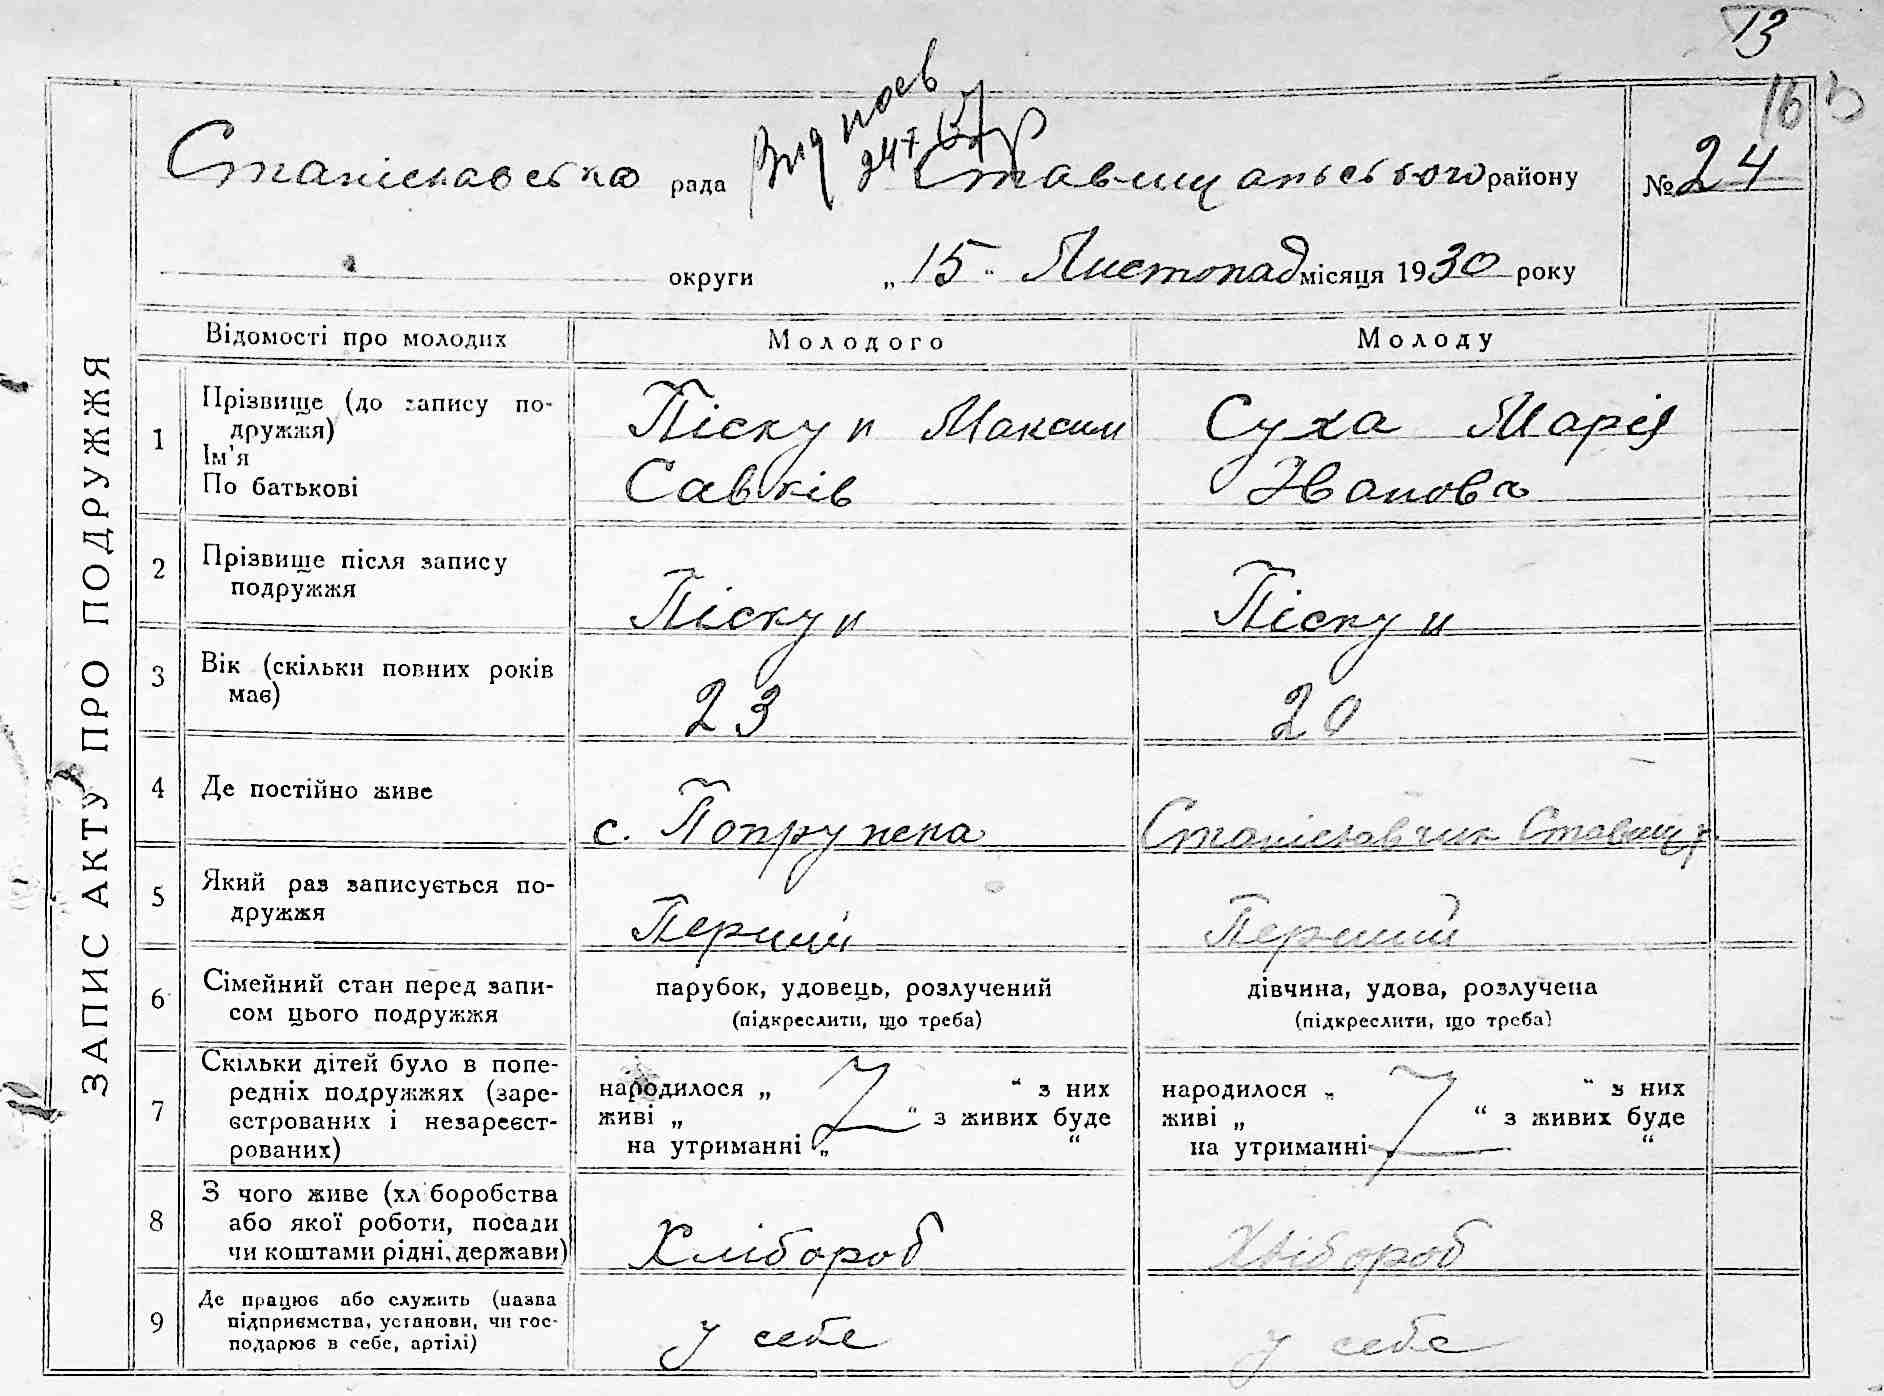 13
16
Станіславська рада Ставищанського району № 24
округи „ 15 “ Листопад місяця 1930 року
ЗАПИС АКТУ ПРО ПОДРУЖЖЯ
Відомості про молодих Молодого Молоду
1 Прізвище (до запису по-
дружжя)
Ім'я
По батькові
Піскун Максим
Савків
Суха Марія
Іванов
2 Прізвище після запису
подружжя
Піскун Піскун
3 Вік (скільки повних років
має)
23 20
4 Де постійно живе
с. Попружена Станіславчик Ставищ
5 Який раз записується по-
дружжя
Перший Перший
6 Сімейний стан перед запи-
сом цього подружжя
парубок, удовець, розлучений
(підкреслити, що треба)
дівчина, удова, розлучена
(підкреслити, що треба)
7 Скільки дітей було в попе-
редніх подружжях (заре-
єстрованих і незареєст-
рованих)
народилося „ “ з них
живі „ “ з живих буде
на утриманні „ “
народилося „ “ з них
живі „ “ з живих буде
на утриманні “
8 З чого живе (хл боробства
або якої роботи, посади
чи коштами рідні, держави)
Хлібороб Хлібороб
9 Де працює або служить (назва
підприємства, установи, чи гос-
подарює в себе, артілі)
у себе у себе